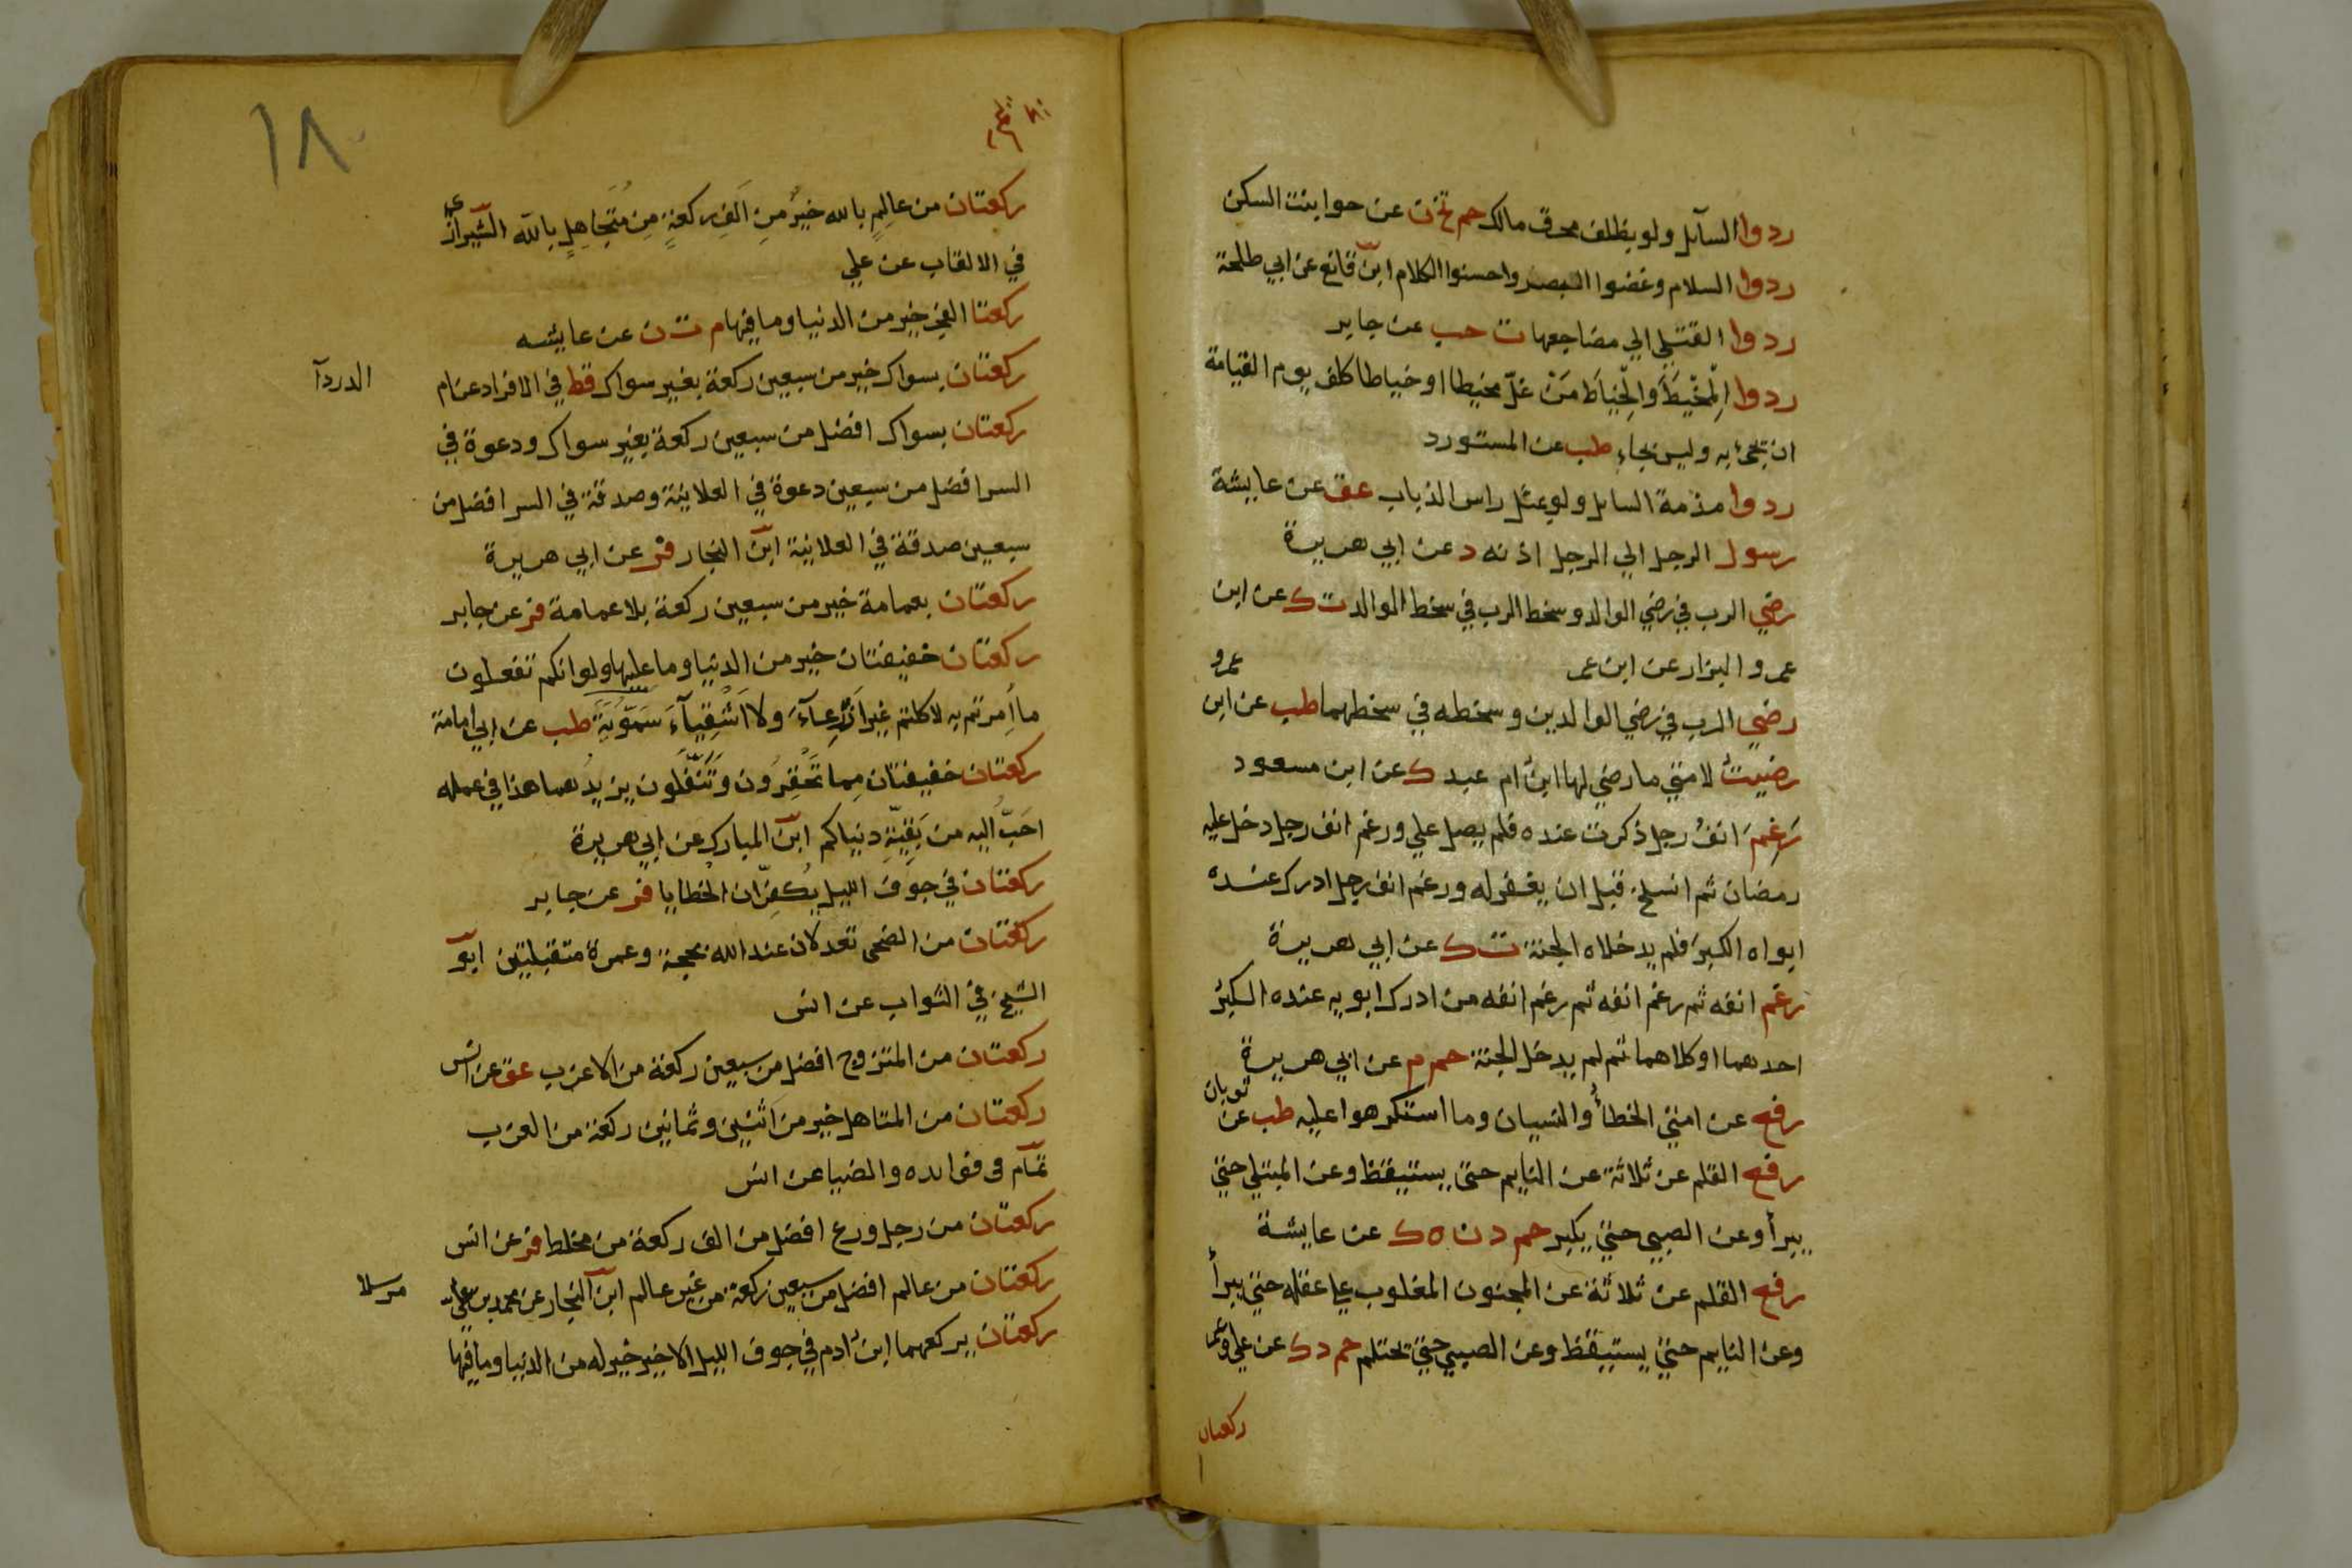 ردوا السآىل ولو بظلف محرق مالك حم تخ ن عن حوا بنت السكن
ردوا السلام وغضوا البصر واحسنوا الكلام ابن قانع عن ابي طلحة
ردوا القتلي الي مضاجعها ت حب عن جابر
ردوا المِخْيَطَ والخِيَاطَ مَنْ غلّ مخيطا او خياطا كلف يوم القيامة
ان يجئ به وليس بجاء طب عن المستورد
ردوا مذمة السايل ولو بمثل راس الذباب عق عن عايشة
رسول الرجل الي الرجل اذنه د عن ابي هريرة
رضي الرب في رضي الوالد وسخط الرب في سخط الوالد ت ك عن ابن
عمرو والبزار عن ابن عمر
عمرو
رضي الرب في رضي الوالدين وسخطه في سخطهما طب عن ابن
رضيتُ لامتي ما رضي لها ابنُ ام عبد ك عن ابن مسعود
رَغِمَ انفُ رجل ذكرت عنده فلم يصل علي ورغم انف رجل دخل عليه
رمضان ثم انسلخ قبل ان يغفر له ورغم انف رجل ادرك عنده
ابواه الكبر فلم يدخلاه الجنة ت ك عن ابي هريرة
رغم انفه ثم رغم انفه ثم رغم انفه من ادرك ابويه عنده الكبر
احدهما او كلاهما ثم لم يدخل الجنة حم م عن ابي هريرة
رفع عن امتي الخطأ والنسيان وما استكرهوا عليه طب عن ثوبان
رفع القلم عن ثلاثة عن النايم حتى يستيقظ وعن المبتلي حتي
يبرأ وعن الصبي حتي يكبر حم د ن ه ك عن عايشة
رفع القلم عن ثلاثة عن المجنون المغلوب علي عقله حتي يبرأ
وعن النايم حتي يستيقظ وعن الصبي حتي يحتلم حم د ك عن علي وعمر
ركعتان
١٨٠
ركعتان من عالِمٍ بالله خيرٌ مِن اَلفِ ركعةٍ مِن مُتَجَاهِلٍ بالله الشيرازي
في الالقاب عن علي
ركعتا الفجر خير من الدنيا وما فيها م ت ن عن عايشه
ركعتان بسواك خير من سبعين ركعة بغير سواك قط في الافراد عن ام
الدردآ
ركعتان بسواك افضل من سبعين ركعة بغير سواك ودعوة في
السر افضل من سبعين دعوة في العلانية وصدقة في السر افضل من
سبعين صدقة في العلانية ابن النجار فر عن ابي هريرة
ركعتان بعمامة خير من سبعين ركعة بلا عمامة فر عن جابر
ركعتان خفيفتان خير من الدنيا وما عليها ولو انكم تفعلون
ما اُمرتم به لاكلتم غير اَذْرِعآءَ ولا اَشْقِيآءَ سمويه طب عن ابي امامة
ركعتان خفيفتان مِما تَحْقِرُون وتَنَفَّلُون يزيدُهما هذا في عمله
احَبُّ اليه من بَقِيَّةِ دنياكم ابن المبارك عن ابي هريرة
ركعتان في جوف الليل يُكَفِّرَان الخطايا فر عن جابر
ركعتان من الضحى تعدلان عند الله بحجة وعمرة متقبلتين ابو
الشيخ في الثواب عن انس
ركعتان من المتزوج افضل من سبعين ركعة من الاعزب عق عن انس
ركعتان من المتاهل خير من اثنين وثمانين ركعة من العزب
تمام فى فوايده والضيا عن انس
ركعتان من رجل ورع افضل من الف ركعة من مخلط فر عن انس
ركعتان من عالم افضل من سبعين ركعة من غير عالم ابن النجار عن محمد بن علي
مرسلا
ركعتان يركعهما ابنُ ادم في جوف الليل الاخير خير له من الدنيا وما فيها